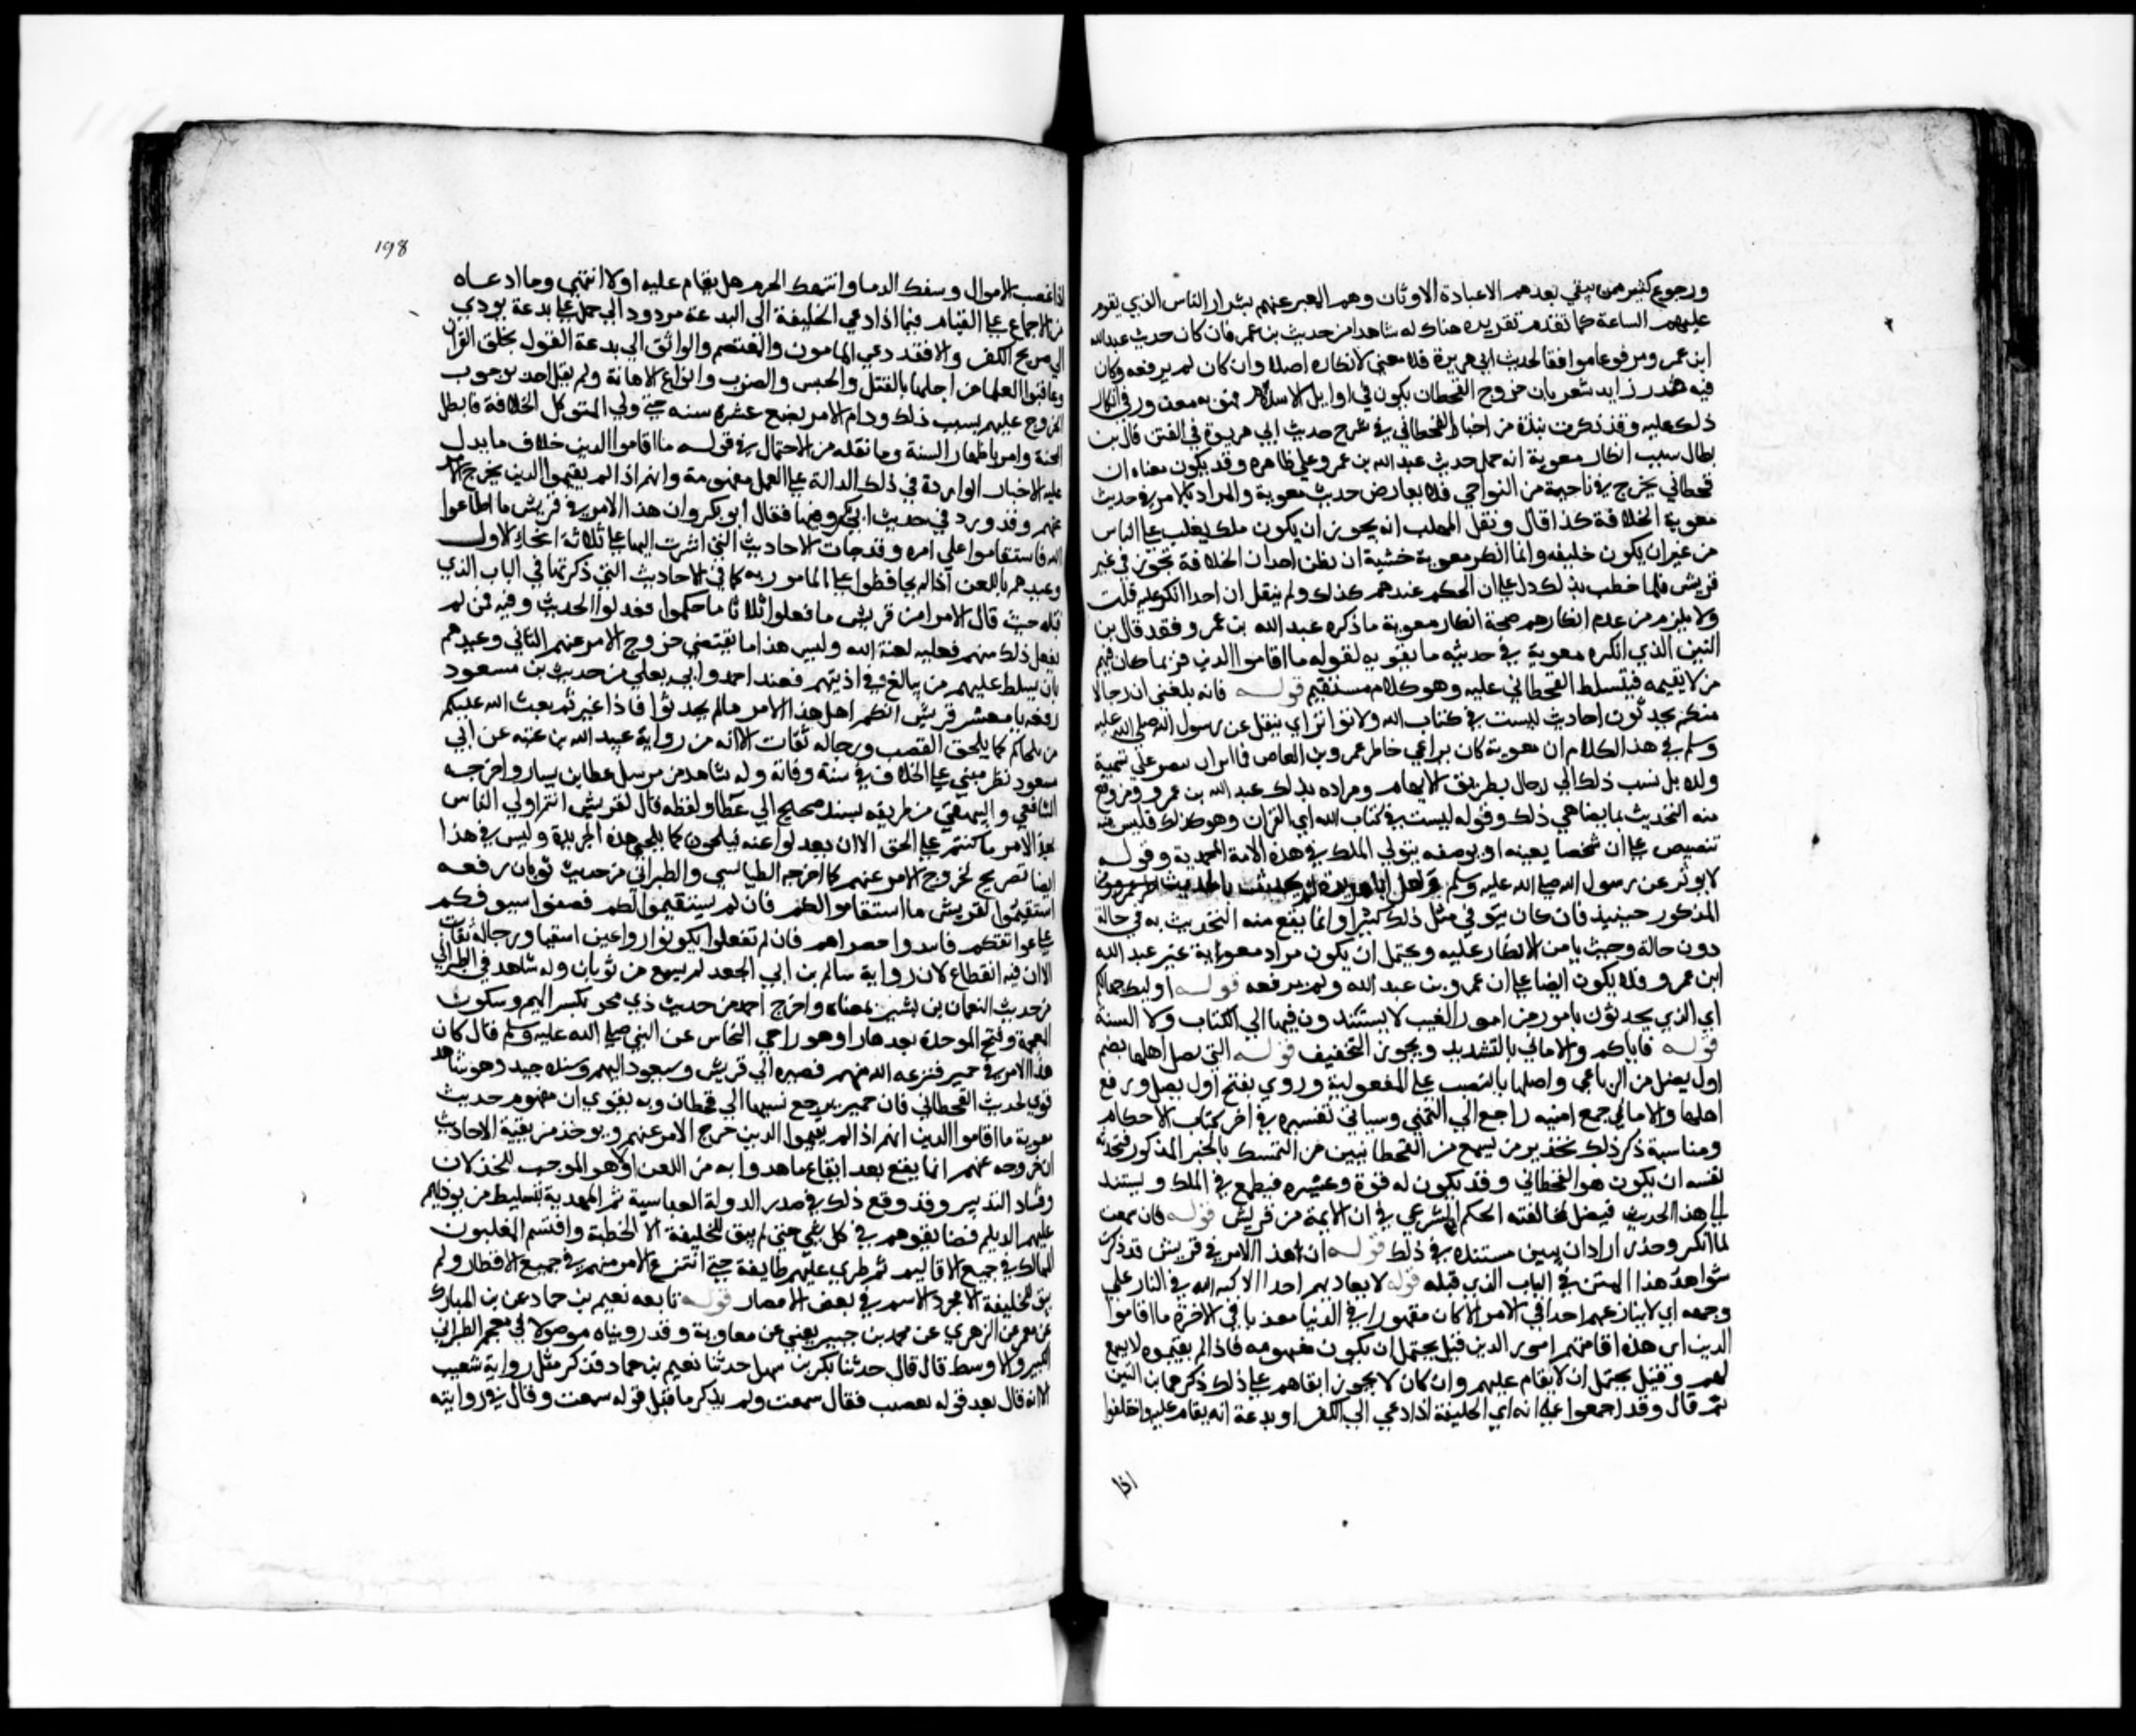 ورجوع كثير ممن يبقي بعدهم الا عبادة الاوثان وهم المعبر عنهم بشرار الناس الذي تقوم
عليهم الساعة كما تقدم تقريره هناك له شاهدا من حديث بن عمر فان كان حديث عبد الله
ابن عمرو مرفوعا موافقا لحديث ابي هريرة فلا معني لانكاره اصلا وان كان لم يرفعه وكان
فيه قدر زايد يشعر بان خروج القحطان يكون في اوايل الاسلام فمعوية معذور في انكار
ذلك عليه وقد ذكرت نبذة من اخبار القحطاني في شرح حديث ابي هريرة في الفتن قال بن
بطال سبب انكار معوية انه حمل حديث عبد الله بن عمرو علي ظاهره وقد يكون معناه ان
قحطاني يخرج في ناحية من النواحي فلا يعارض حديث معوية والمراد بالامر في حديث
معوية الخلافة كذا قال ونقل المهلب انه يجوز ان يكون ملك يغلب علي الناس
من غير ان يكون خليفه وانما انكر معوية خشية ان يظن احد ان الخلافة تجوز في غير
قريش فلما خطب بذلك دل علي ان الحكم عندهم كذلك ولم ينقل ان احدا انكر عليه قلت
ولا يلزم من عدم انكارهم صحة انكار معوية ما ذكره عبد الله بن عمرو فقد قال بن
التين الذي انكره معوية في حديثه ما يقويه لقوله ما اقاموا الدين فربما كان فيهم
من لا يقيمه فيتسلط القحطاني عليه وهو كلام مستقيم قوله فانه بلغني ان رجالا
منكم يحدثون احاديث ليست في كتاب الله ولا توثر اي ينقل عن رسول الله صلي الله عليه
وسلم في هذا الكلام ان معوية كان يراعي خاطر عمرو بن العاص فما اثر ان ينص علي تسمية
ولده بل نسب ذلك الي رجال بطريق الابهام ومراده بذلك عبد الله بن عمرو ومن وقع
منه التحديث بما يضاهي ذلك وقوله ليست في كتاب الله اي القران وهو كذلك فليس فيه
تنصيص علي ان شخصا بعينه او بوصفه يتولي الملك في هذه الامة المحمدية وقوله
لا يوثر عن رسول الله صلي الله عليه وسلم
المذكور حينيذ فان كان يتوقي مثل ذلك كثيرا وانما يقع منه التحديث به في حالة
دون حالة وحيث يامن الانكار عليه ويحتمل ان يكون مراد معوية غير عبد الله
ابن عمرو فلا يكون ايضا علي ان عمرو بن عبد الله ولم يرفعه قوله اوليك جهالكم
اي الذي يحدثون بامور من امور الغيب لا يستندون فيها الي الكتاب ولا السنة
قوله فاياكم والاماني بالتشديد ويجوز التخفيف قوله التي تضل اهلها بضم
اول يضل من الرباعي واصلها بالنصب علي المفعولية وروي بفتح اول يضل ورفع
اهلها والاماني جمع امنيه راجع الي التمني وسياتي تفسيره في اخر كتاب الاحكام
ومناسبة ذكر ذلك تحذير من يسمع من القحطانيين من التمسك بالخبر المذكور فتحدثه
نفسه ان يكون هو القحطاني وقد يكون له قوة وعشيره فيطمع في الملك ويستند
الي هذا الحديث فيضل لمخالفته الحكم الشرعي في ان الايمة من قريش قوله فان سمعت
لما انكر وحذر اراد ان يبين مستنده في ذلك قوله ان هذا الامر في قريش قد ذكرت
شواهد هذا المتن في الباب الذي قبله قوله لا يعاديهم احد الا كبه الله في النار علي
وجهه اي لا ينازعهم احد في الامر الا كان مقهورا في الدنيا معذبا في الاخرة ما اقاموا
الدين اي مدة اقامتهم امور الدين قيل يحتمل ان يكون مفهومه فاذا لم يقيموه لا يسمع
لهم وقيل يحتمل ان لا يقام عليهم وان كان لا يجوز ابقاهم علي ذلك ذكرهما بن التين
ثم قال وقد اجمعوا علي انه اي الخليفة اذا دعي الي الكفر او بدعة انه يقام عليه واختلفوا
اذا
198
اذا غصب الاموال وسفك الدما وانتهك الحرم هل يقام عليه او لا انتهي وما ادعاه
من الاجماع علي القيام فيما اذا دعي الخليفة الي البدعة مردود الي حمل علي بدعة يودي
الي صريح الكفر والا فقد دعي المامون والمعتصم والواثق الي بدعة القول بخلق القران
وعاقبوا العلما من اجلها بالقتل والحبس والضرب وانواع الاهانة ولم يقل احد بوجوب
الخروج عليهم بسبب ذلك ودام الامر بضع عشرة سنه حتي ولي المتوكل الخلافة فابطل
المحنة وامر باظهار السنة وما نقله من الاحتمال في قوله ما اقاموا الدين خلاف ما يدل
عليه الاخبار الواردة في ذلك الدالة علي العمل بمفهومه وانهم اذا لم يقيموا الدين يخرج الامر
عنهم وقد ورد في حديث ابي بكر وفيها فقال ابو بكر وان هذا الامر في قريش ما اطاعوا
الله فاستقاموا علي امره وقد جات الاحاديث التي اشرت اليها علي ثلاثة انحاء الاول
وعيدهم باللعن اذا لم يحافظوا علي المامور به كما في الاحاديث التي ذكرتها في الباب الذي
قبله حيث قال الامرا من قريش ما فعلوا ثلاثا ما حكموا فعدلوا الحديث وفيه فمن لم
يفعل ذلك منهم فعليه لعنة الله وليس هذا ما يقتضي خروج الامر عنهم الثاني وعيدهم
بان يسلط عليهم من يبالغ في اذيتهم فعند احمد وابي يعلي من حديث بن مسعود
رفعه يا معشر قريش انكم اهل هذا الامر ما لم تحدثوا فاذا غيرتم بعث الله عليكم
من يلحاكم كما يلحق القضب ورجاله ثقات الا انه من رواية عبيد الله بن عتبه عن ابي
مسعود نظر مبني علي الخلاف في سنة وفاته وله شاهد من مرسل عطا بن يسار واخرجه
الشافعي والبيهقي من طريقه بسند صحيح الي عطا ولفظه قال لقريش انتم اولي الناس
بهذا الامر ما كنتم علي الحق الا ان تعدلوا عنه فتلحون كما يلحي هذه الجريدة وليس في هذا
ايضا تصريح لخروج الامر عنهم كما اخرجه الطيالسي والطبراني من حديث ثوبان رفعه
استقيموا لقريش ما استقاموا لكم فان لم يستقيموا لكم فضعوا سيوفكم
علي عواتقكم فاسدوا خضراهم فان لم تفعلوا يكونوا زراعين اشقيا ورجاله ثقات
الا ان فيه انقطاع لان رواية سالم بن ابي الجعد لم يسمع من ثوبان وله شاهد في الطبراني
من حديث النعمان بن بشير بمعناه واخرج احمد من حديث ذي مخبر بكسر الميم وسكون
المعجمة وفتح الموحدة بعدها را وهو راخي النجاس عن النبي صلي الله عليه وسلم قال كان
هذا الامر في حمير فنزعه الله منهم فصيره الي قريش وسيعود اليهم وسنده جيد وهو شاهد
قوي لحديث القحطاني فان حمير يرجع نسبها الي قحطان وبه يقوي ان مفهوم حديث
معوية ما اقاموا الدين انهم اذا لم يقيموا الدين خرج الامر عنهم ويوخذ من بقية الاحاديث
ان خروجه عنهم انما يقع بعد ايقاع ما هددوا به من اللعن اولا وهو الموجب للخذلان
وفساد التدبير وقد وقع ذلك في صدر الدولة العباسية ثم التهديد بتسليط من يوذيهم
عليهم الديلم فضايقوهم في كل شي حتي لم يبق للخليفة الا الخطبة واقتسم المتغلبون
الممالك في جميع الاقاليم ثم طري عليهم طايفة حتي انتزع الامر منهم في جميع الاقطار ولم
يبق للخليفة الا مجرد الاسم في بعض الامصار قوله تابعه نعيم بن حماد عن بن المبارك
عن معمر عن الزهري عن محمد بن جبير يعني عن معاوية وقد رويناه موصولا في معجم الطبراني
الكبير والاوسط قال قال حدثنا بكر بن سهل حدثنا نعيم بن حماد فذكر مثل رواية شعيب
الا انه قال بعد قوله بغضب فقال سمعت ولم يذكر ما قبل قوله سمعت وقال في روايته